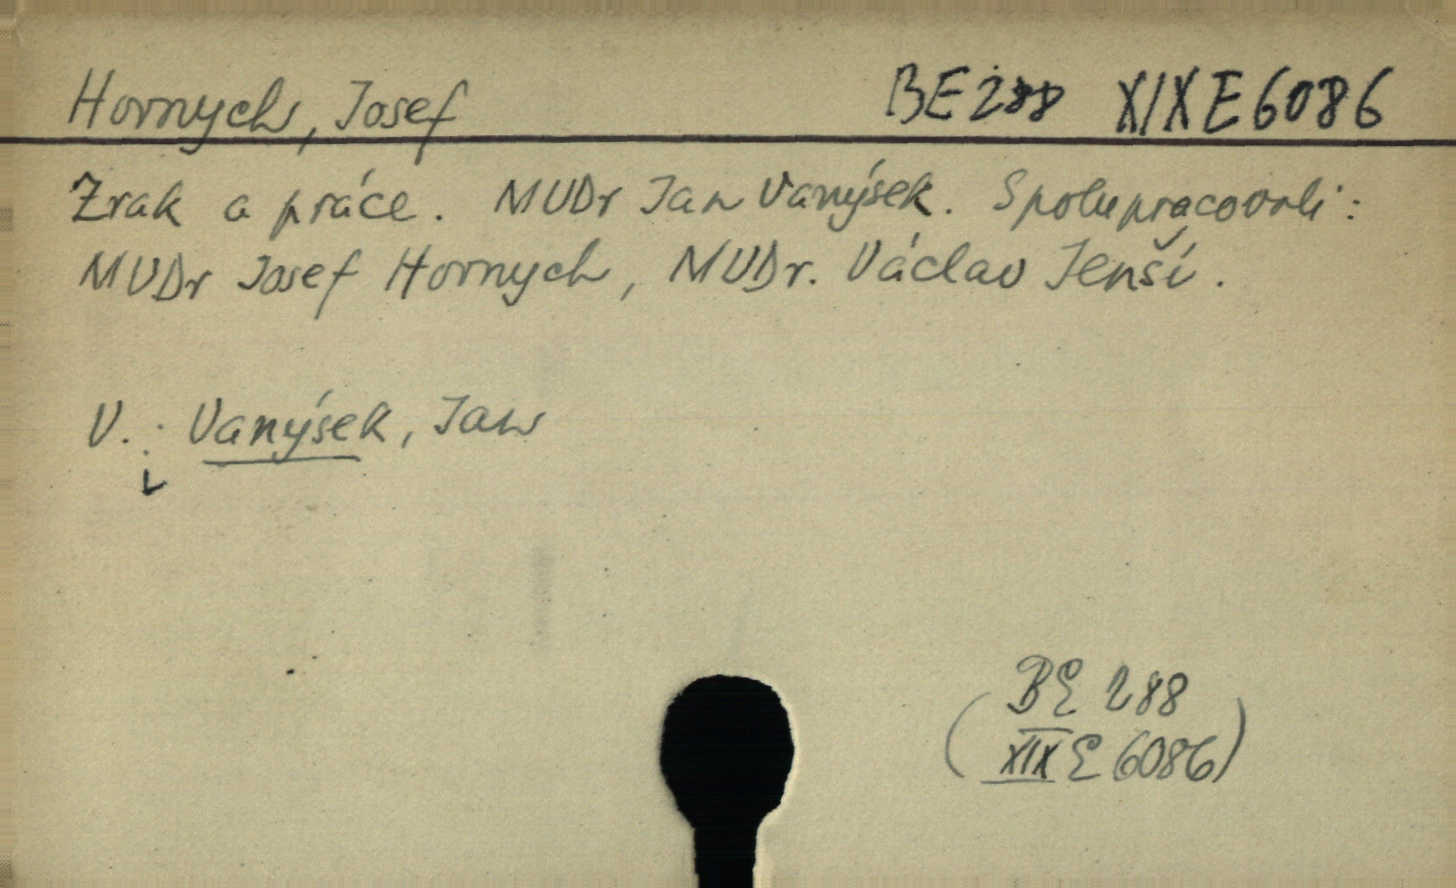 Hornych, Josef BE 288 XIX E 6086
Zrak a práce. MUDr Jan Vanýsek. Spolupracovali:
MUDr Josef Hornych, MUDr. Václav Jenší.
V.: Vanýsek, Jan
(BE 288
XIX E 6086)